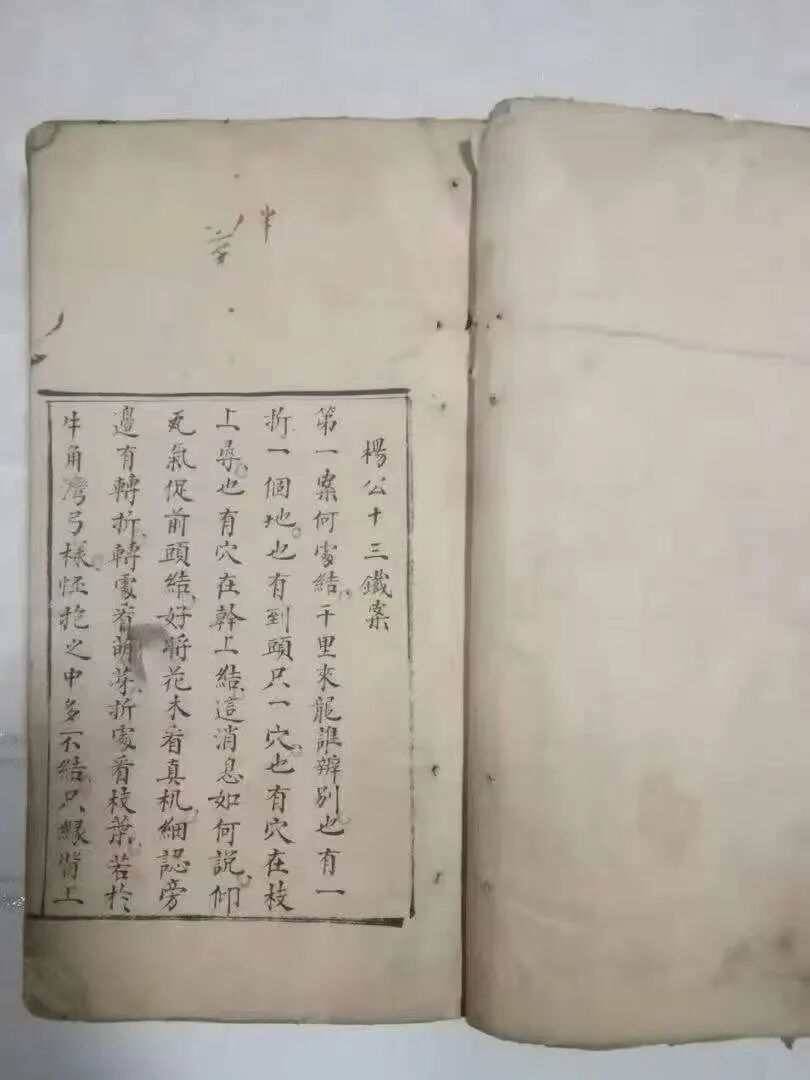 楊公十三鐵案
第一案何處結、千里來龍誰辨别、也有一
折一個地。也有到頭只一穴。也有穴在枝
上尋。也有穴在幹上結、這消息如何説。仰
氣促前頭結、好將花未看真机。細認旁
邊有轉折、轉處看萌芽、折處看枝葉、若於
牛角灣弓樣。怪抱之中多不結、只緣背上